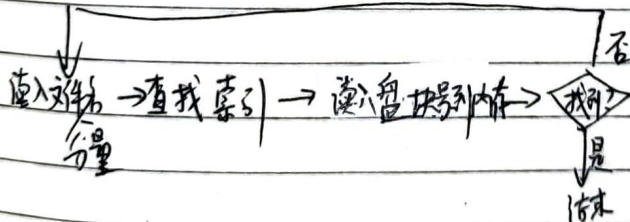 否
读入文件名 → 查找索引 → 读入盘块号到内存 → 找到?
分量
是
结束